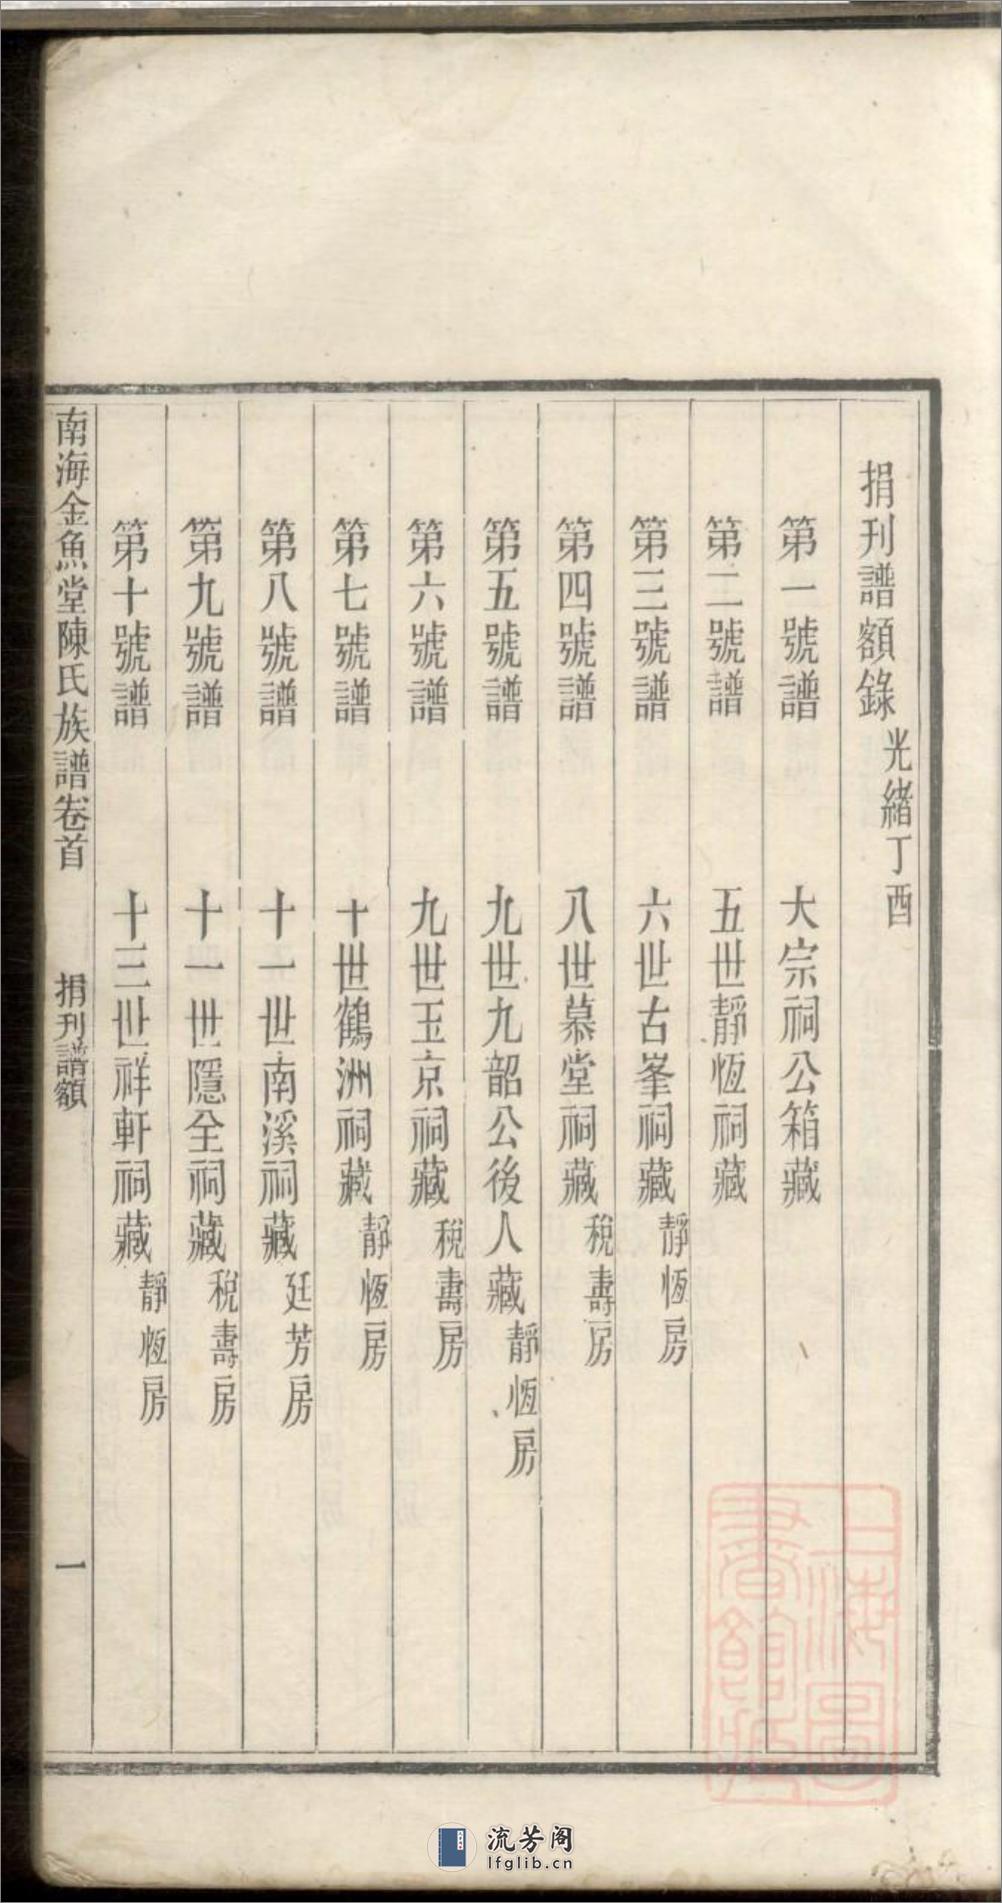 捐刊譜額錄光緒丁酉
第一號譜 大宗祠公箱藏
第二號譜 五世靜恆祠藏
第三號譜 六世古峯祠藏靜恆房
第四號譜 八世慕堂祠藏稅壽房
第五號譜 九世九韶公後人藏靜恆房
第六號譜 九世玉京祠藏稅壽房
第七號譜 十世鶴洲祠藏靜恆房
第八號譜 十一世南溪祠藏廷芳房
第九號譜 十一世隱全祠藏稅壽房
第十號譜 十三世祥軒祠藏靜恆房
南海金魚堂陳氏族譜卷首 捐刊譜額 一
上海圖書館藏
流芳阁
lfglib.cn